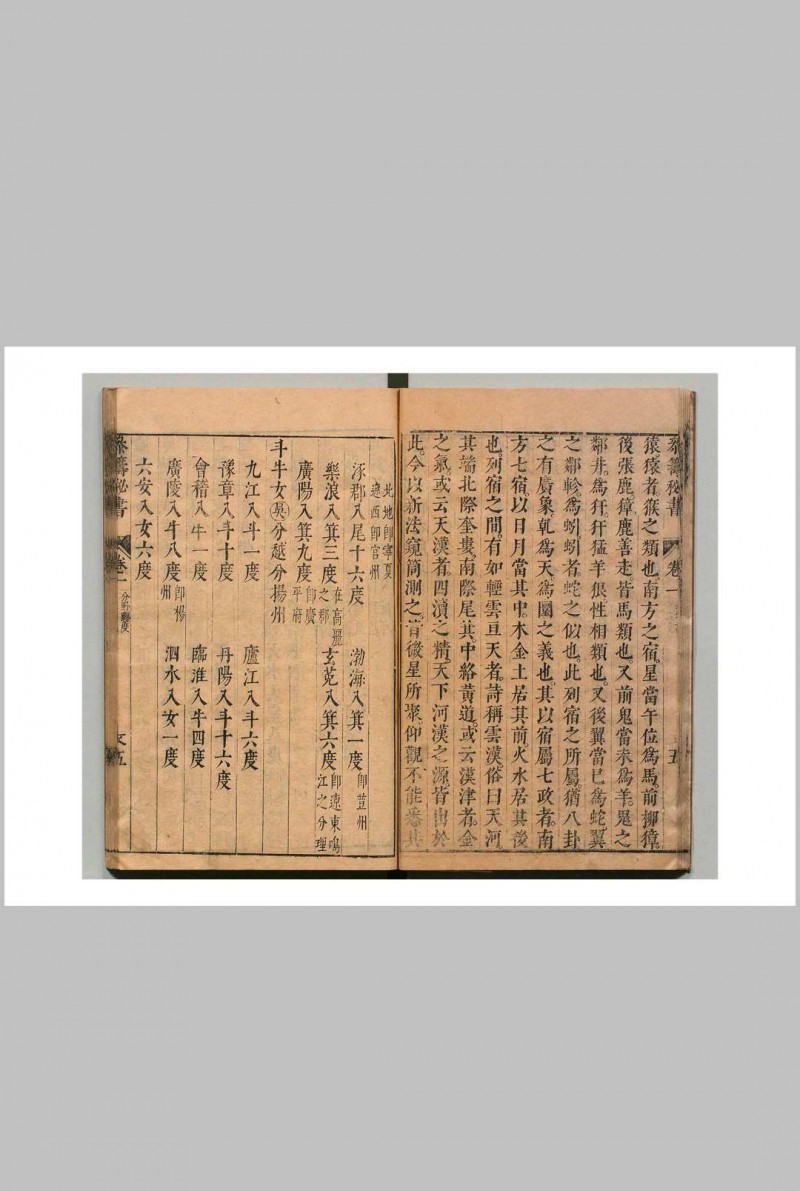 猿猿者猴之類也南方之宿星當午位為馬前柳獐
後張鹿獐鹿善走皆馬類也又前鬼當未為羊鬼之
鄰井為犴犴猛羊狠性相類也又後翼當巳為蛇翼
之鄰軫為蚓蚓者蛇之似也此列宿之所屬猶八卦
之有廣象乾為天為圜之義也其以宿屬七政者南
方七宿以日月當其中木金土居其前火水居其後
也列宿之間有如輕雲亘天者詩稱雲漢俗曰天河
其端北際奎婁南際尾箕中絡黃道或云漢津者金
之氣或云天漢者四瀆之精天下河漢之源皆由於
此今以新法窺筒測之皆微星所聚仰觀不能悉其
參籌秘書
卷一
五
北地即寧夏
遼西即官州
涿郡入尾十六度 渤海入箕一度即荳州
樂浪入箕三度在高麗之郡 玄菟入箕六度即遼東鳴江之分理
廣陽入箕九度即廣平府
斗牛女吳分越分揚州
九江入斗一度 廬江入斗六度
豫章入斗十度 丹陽入斗十六度
會稽入牛一度 臨淮入牛四度
廣陵入牛八度即楊州 泗水入女一度
六安入女六度
參籌秘書
卷二
分野躔度
文五